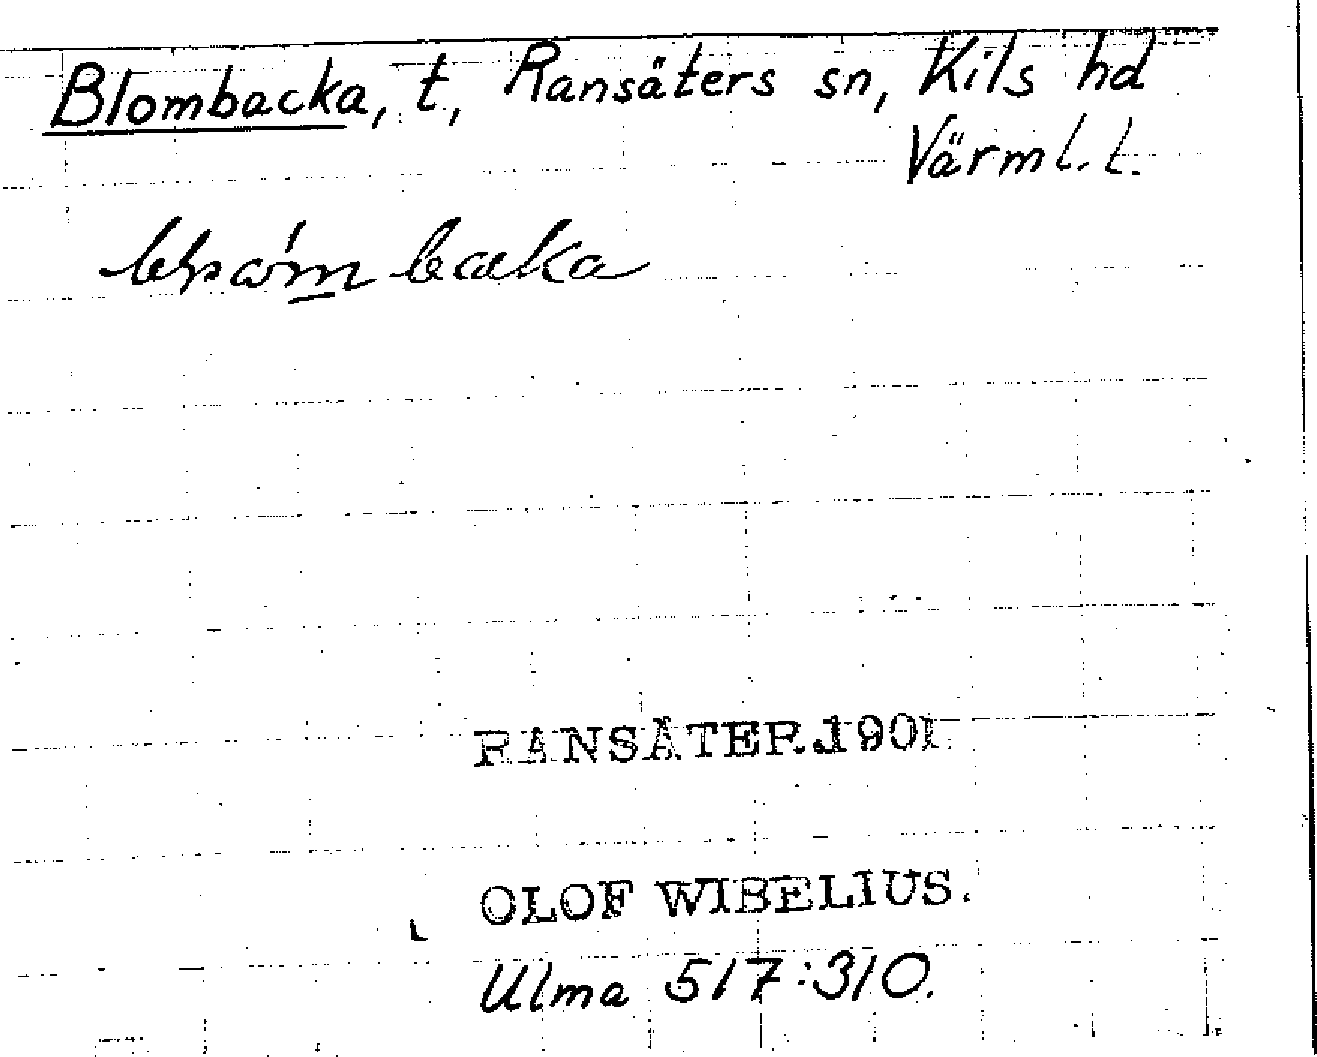 Blombacka, t, Ransäters sn, Kils hd
Värml. l.
RANSÄTER 1901
OLOF WIBELIUS.
Ulma 517:310.